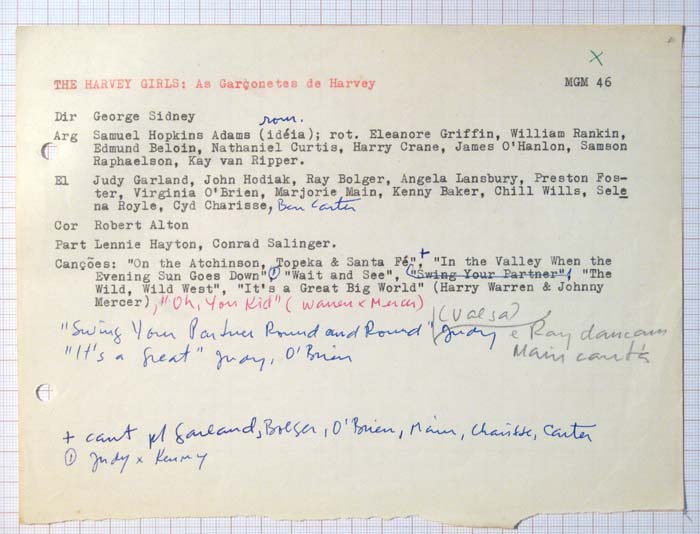 x
THE HARVEY GIRLS: As Garçonetes de Harvey MGM 46
Dir George Sidney
rom.
Arg Samuel Hopkins Adams (idéia); rot. Eleanore Griffin, William Rankin,
Edmund Beloin, Nathaniel Curtis, Harry Crane, James O'Hanlon, Samson
Raphaelson, Kay van Ripper.
El Judy Garland, John Hodiak, Ray Bolger, Angela Lansbury, Preston Fos-
ter, Virginia O'Brien, Marjorie Main, Kenny Baker, Chill Wills, Sele
na Royle, Cyd Charisse, Ben Carter
Cor Robert Alton
Part Lennie Hayton, Conrad Salinger.
Canções: "On the Atchinson, Topeka & Santa Fé",+ "In the Valley When the
Evening Sun Goes Down",① "Wait and See", ("Swing Your Partner", "The
Wild, Wild West", "It's a Great Big World" (Harry Warren & Johnny
Mercer), "Oh, You Kid" (Warren x Mercer)
"Swing Your Partner Round and Round" (Valsa) Judy e Ray dancam
"It's a great" Judy, O'Brien Main canta
+ cant p/ Garland, Bolger, O'Brien, Main, Charisse, Carter
① Judy x Kenny